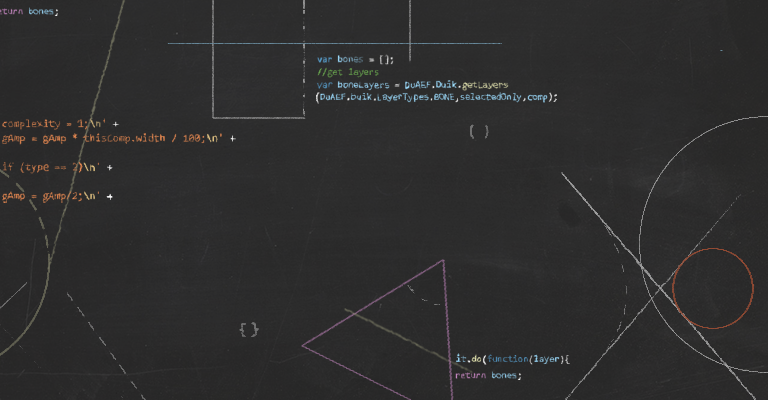 eturn bones;
var bones = [];
//get layers
var boneLayers = DuAEF.Duik.getLayers
(DuAEF.Duik.LayerTypes.BONE,selectedOnly,comp);
complexity = 1;\n' +
{ }
gAmp = gAmp * thisComp.width / 100;\n' +
if (type == 2)\n' +
gAmp = gAmp/2;\n' +
{}
it.do(function(layer){
return bones;